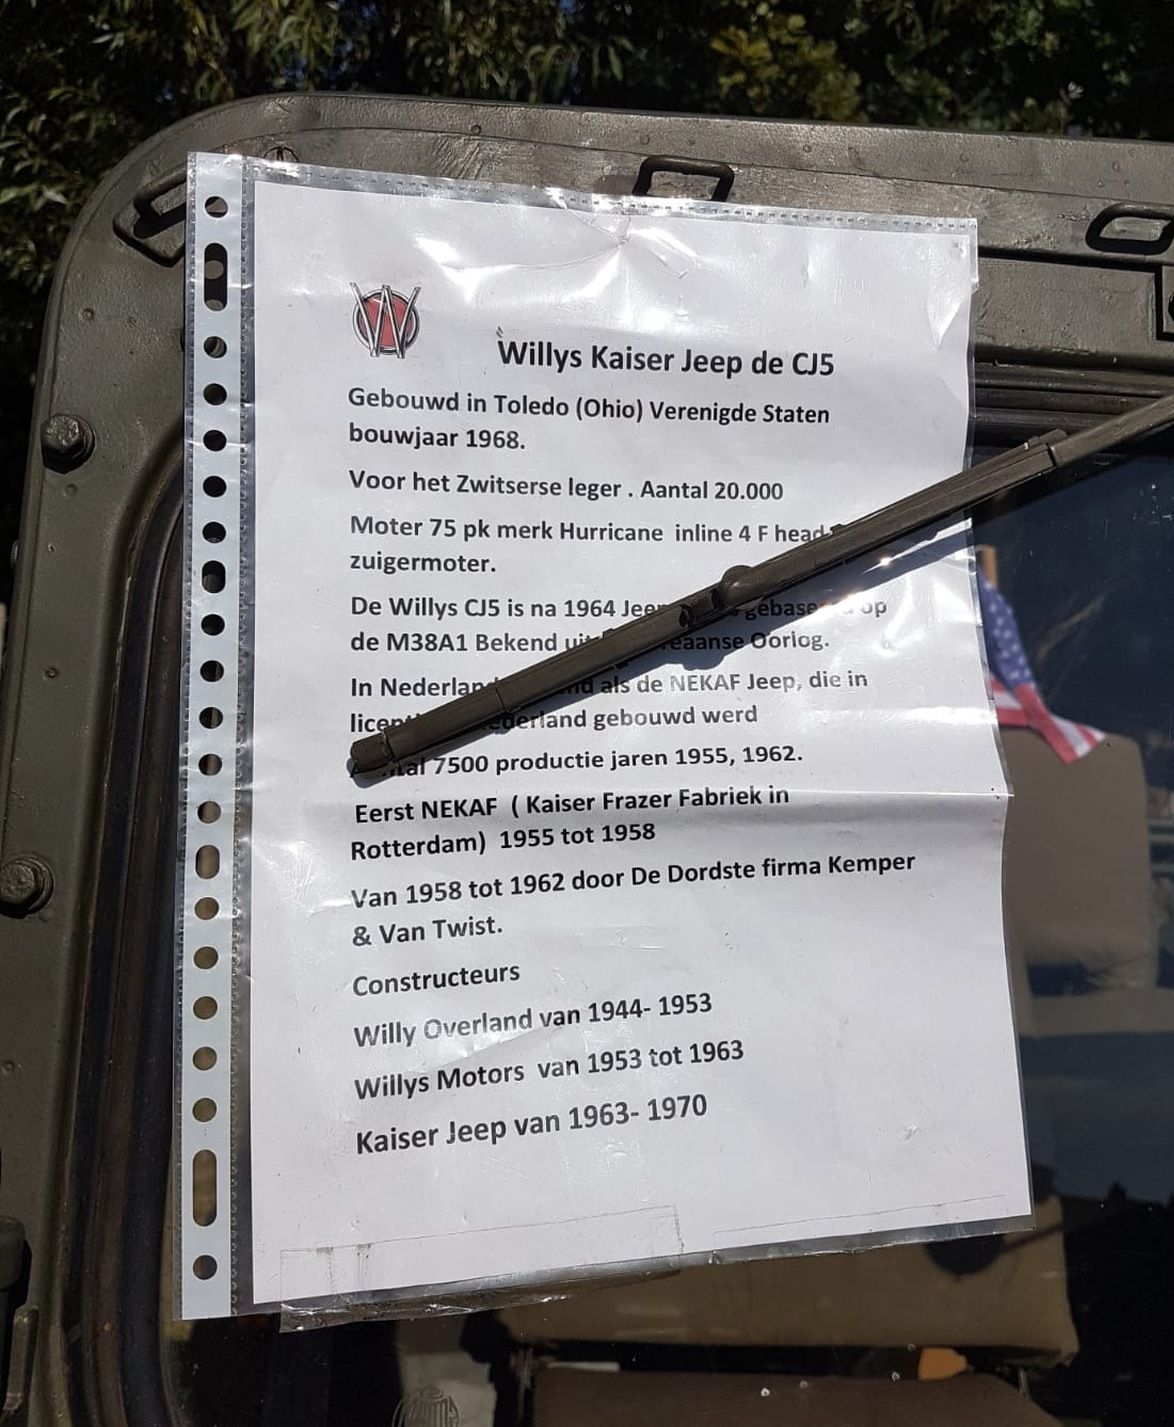 W
Willys Kaiser Jeep de CJ5
Gebouwd in Toledo (Ohio) Verenigde Staten
bouwjaar 1968.
Voor het Zwitserse leger . Aantal 20.000
Moter 75 pk merk Hurricane inline 4 F head
zuigermoter.
De Willys CJ5 is na 1964 op
de M38A1 Bekend Oorlog.
In als de NEKAF Jeep, die in
gebouwd werd
7500 productie jaren 1955, 1962.
Eerst NEKAF ( Kaiser Frazer Fabriek in
Rotterdam) 1955 tot 1958
Van 1958 tot 1962 door De Dordste firma Kemper
& Van Twist.
Constructeurs
Willy Overland van 1944- 1953
Willys Motors van 1953 tot 1963
Kaiser Jeep van 1963- 1970